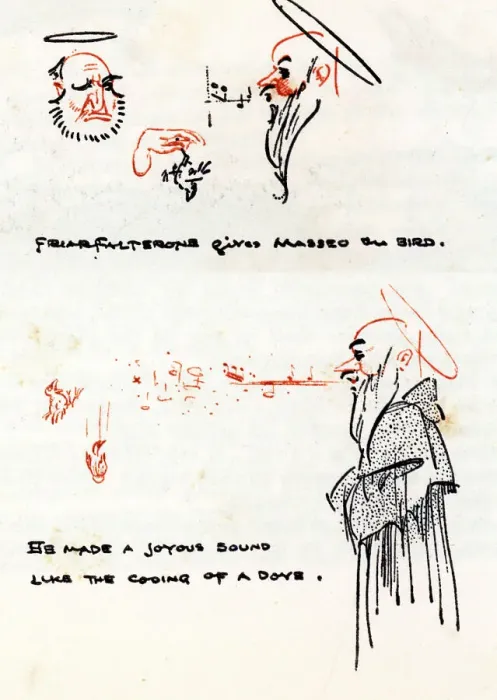 FRIAR FALTERONE gives MASSEO the BIRD.
HE MADE A JOYOUS SOUND
LIKE THE COOING OF A DOVE.